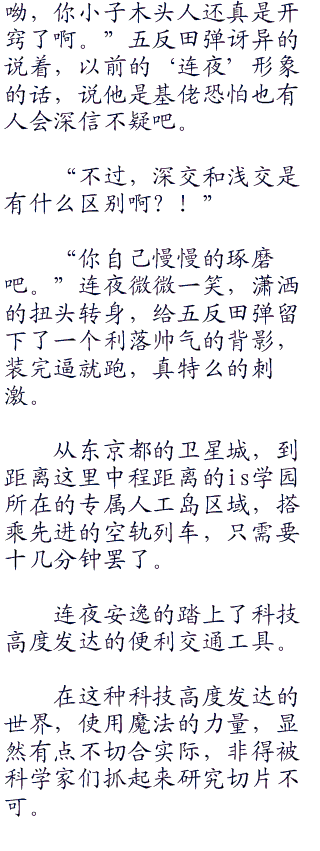 呦，你小子木头人还真是开
窍了啊。”五反田弹讶异的
说着，以前的‘连夜’形象
的话，说他是基佬恐怕也有
人会深信不疑吧。
“不过，深交和浅交是
有什么区别啊？！”
“你自己慢慢的琢磨
吧。”连夜微微一笑，潇洒
的扭头转身，给五反田弹留
下了一个利落帅气的背影，
装完逼就跑，真特么的刺
激。
从东京都的卫星城，到
距离这里中程距离的is学园
所在的专属人工岛区域，搭
乘先进的空轨列车，只需要
十几分钟罢了。
连夜安逸的踏上了科技
高度发达的便利交通工具。
在这种科技高度发达的
世界，使用魔法的力量，显
然有点不切合实际，非得被
科学家们抓起来研究切片不
可。